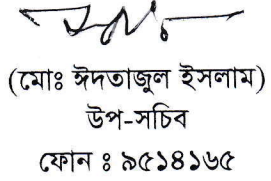 (মোঃ ঈদতাজুল ইসলাম)
উপ-সচিব
ফোন ঃ ৯৫১৪১৬৫